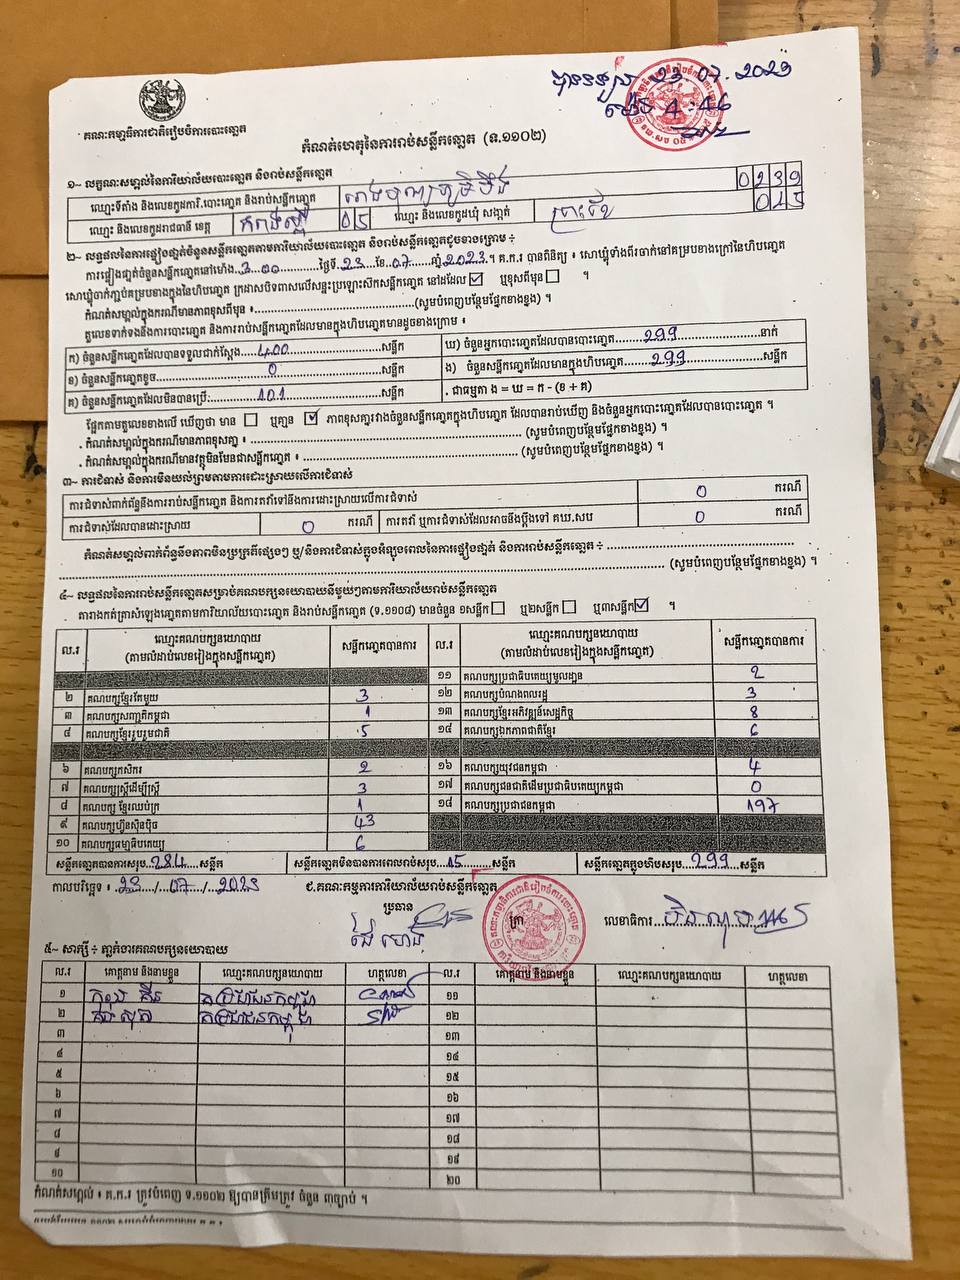 បានទទួល 23.07.2023
ម៉ោង 4:46
គណៈកម្មាធិការជាតិរៀបចំការបោះឆ្នោត
កំណត់ហេតុនៃការរាប់សន្លឹកឆ្នោត (ទ.១១០២)
១~ លក្ខណៈសម្គាល់នៃការិយាល័យបោះឆ្នោត និងរាប់សន្លឹកឆ្នោត
ឈ្មោះទីតាំង និងលេខកូដការិ.បោះឆ្នោត និងរាប់សន្លឹកឆ្នោត 0239
ឈ្មោះ និងលេខកូដរាជធានី ខេត្ត កំពង់ស្ពឺ 05 ឈ្មោះ និងលេខកូដឃុំ សង្កាត់ 045
២~ លទ្ធផលនៃការផ្ទៀងផ្ទាត់ចំនួនសន្លឹកឆ្នោតតាមការិយាល័យបោះឆ្នោត និងរាប់សន្លឹកឆ្នោតដូចខាងក្រោម ៖
ការផ្ទៀងផ្ទាត់ចំនួនសន្លឹកឆ្នោតនៅម៉ោង 3:00 ថ្ងៃទី 23 ខែ 07 ឆ្នាំ 2023 ។ គ.ក.រ បានពិនិត្យ ៖ សោប្ញុំទាំងពីរចាក់នៅគម្របខាងក្រៅនៃហិបឆ្នោត
សោប្ញុំចាក់ភ្ជាប់គម្របខាងក្នុងនៃហិបឆ្នោត ក្រដាសបិទពាសលើសន្ទះប្រឡោះស៊កសន្លឹកឆ្នោត នៅដដែល ☑ ឬខុសពីមុន ☐ ។
កំណត់សម្គាល់ក្នុងករណីមានភាពខុសពីមុន ៖ (សូមបំពេញបន្ថែមផ្នែកខាងខ្នង) ។
តួលេខទាក់ទងនឹងការបោះឆ្នោត និងការរាប់សន្លឹកឆ្នោតដែលមានក្នុងហិបឆ្នោតមានដូចខាងក្រោម ៖
ក) ចំនួនសន្លឹកឆ្នោតដែលបានទទួលជាក់ស្តែង 400 សន្លឹក ឃ) ចំនួនអ្នកបោះឆ្នោតដែលបានបោះឆ្នោត 299 នាក់
ខ) ចំនួនសន្លឹកឆ្នោតខូច 0 សន្លឹក ង) ចំនួនសន្លឹកឆ្នោតដែលមានក្នុងហិបឆ្នោត 299 សន្លឹក
គ) ចំនួនសន្លឹកឆ្នោតដែលមិនបានប្រើ 101 សន្លឹក . ជាធម្មតា ង = ឃ = ក - (ខ + គ)
ផ្អែកតាមតួលេខខាងលើ ឃើញថា មាន ☐ ឬគ្មាន ☑ ភាពខុសគ្នារវាងចំនួនសន្លឹកឆ្នោតក្នុងហិបឆ្នោត ដែលបានរាប់ឃើញ និងចំនួនអ្នកបោះឆ្នោតដែលបានបោះឆ្នោត ។
. កំណត់សម្គាល់ក្នុងករណីមានភាពខុសគ្នា ៖ (សូមបំពេញបន្ថែមផ្នែកខាងខ្នង) ។
. កំណត់សម្គាល់ក្នុងករណីមានវត្ថុមិនមែនជាសន្លឹកឆ្នោត ៖ (សូមបំពេញបន្ថែមផ្នែកខាងខ្នង) ។
៣~ ការជំទាស់ និងការមិនយល់ព្រមតាមការដោះស្រាយលើការជំទាស់
ការជំទាស់ពាក់ព័ន្ធនឹងការរាប់សន្លឹកឆ្នោត និងការតវ៉ាទៅនឹងការដោះស្រាយលើការជំទាស់ 0 ករណី
ការជំទាស់ដែលបានដោះស្រាយ 0 ករណី ការតវ៉ា ឬការជំទាស់ដែលអាចនឹងប្តឹងទៅ គឃ.សប 0 ករណី
កំណត់សម្គាល់ពាក់ព័ន្ធនឹងភាពមិនប្រក្រតីផ្សេងៗ ឬ/និងការជំទាស់ក្នុងអំឡុងពេលនៃការផ្ទៀងផ្ទាត់ និងការរាប់សន្លឹកឆ្នោត ៖
(សូមបំពេញបន្ថែមផ្នែកខាងខ្នង) ។
៤~ លទ្ធផលនៃការរាប់សន្លឹកឆ្នោតសម្រាប់គណបក្សនយោបាយនីមួយៗតាមការិយាល័យរាប់សន្លឹកឆ្នោត
តារាងកត់ត្រាសំឡេងឆ្នោតតាមការិយាល័យបោះឆ្នោត និងរាប់សន្លឹកឆ្នោត (ទ.១១០៨) មានចំនួន ១សន្លឹក ☐ ឬ២សន្លឹក ☐ ឬ៣សន្លឹក ☑ ។
ល.រ ឈ្មោះគណបក្សនយោបាយ (តាមលំដាប់លេខរៀងក្នុងសន្លឹកឆ្នោត) សន្លឹកឆ្នោតបានការ ល.រ ឈ្មោះគណបក្សនយោបាយ (តាមលំដាប់លេខរៀងក្នុងសន្លឹកឆ្នោត) សន្លឹកឆ្នោតបានការ
១១ គណបក្សប្រជាធិបតេយ្យមូលដ្ឋាន 2
២ គណបក្សខ្មែរតែមួយ 3 ១២ គណបក្សបំណងពលរដ្ឋ 3
៣ គណបក្សសញ្ជាតិកម្ពុជា 1 ១៣ គណបក្សខ្មែរអភិវឌ្ឍន៍សេដ្ឋកិច្ច 8
៤ គណបក្សខ្មែររួបរួមជាតិ 5 ១៤ គណបក្សឯកភាពជាតិខ្មែរ 6
៦ គណបក្សកសិករ 2 ១៦ គណបក្សយុវជនកម្ពុជា 4
៧ គណបក្សស្ត្រីដើម្បីស្ត្រី 3 ១៧ គណបក្សជនជាតិដើមប្រជាធិបតេយ្យកម្ពុជា 0
៨ គណបក្ស ខ្មែរឈប់ក្រ 1 ១៨ គណបក្សប្រជាជនកម្ពុជា 197
៩ គណបក្សហ៊្វុនស៊ិនប៉ិច 43
១០ គណបក្សធម្មាធិបតេយ្យ 6
សន្លឹកឆ្នោតបានការសរុប 284 សន្លឹក សន្លឹកឆ្នោតមិនបានការពេលរាប់សរុប 15 សន្លឹក សន្លឹកឆ្នោតក្នុងហិបសរុប 299 សន្លឹក
កាលបរិច្ឆេទ ៖ 23/07/2023 ជ.គណៈកម្មការការិយាល័យរាប់សន្លឹកឆ្នោត
ប្រធាន លេខាធិការ
៥~ សាក្សី ៖ ភ្នាក់ងារគណបក្សនយោបាយ
ល.រ គោត្តនាម និងនាមខ្លួន ឈ្មោះគណបក្សនយោបាយ ហត្ថលេខា ល.រ គោត្តនាម និងនាមខ្លួន ឈ្មោះគណបក្សនយោបាយ ហត្ថលេខា
១ គ.ប្រជាជនកម្ពុជា ១១
២ គ.ប្រជាជនកម្ពុជា ១២
៣ ១៣
៤ ១៤
៥ ១៥
៦ ១៦
៧ ១៧
៨ ១៨
៩ ១៩
១០ ២០
កំណត់សម្គាល់ ៖ គ.ក.រ ត្រូវបំពេញ ទ.១១០២ ឱ្យបានត្រឹមត្រូវ ចំនួន ៣ច្បាប់ ។